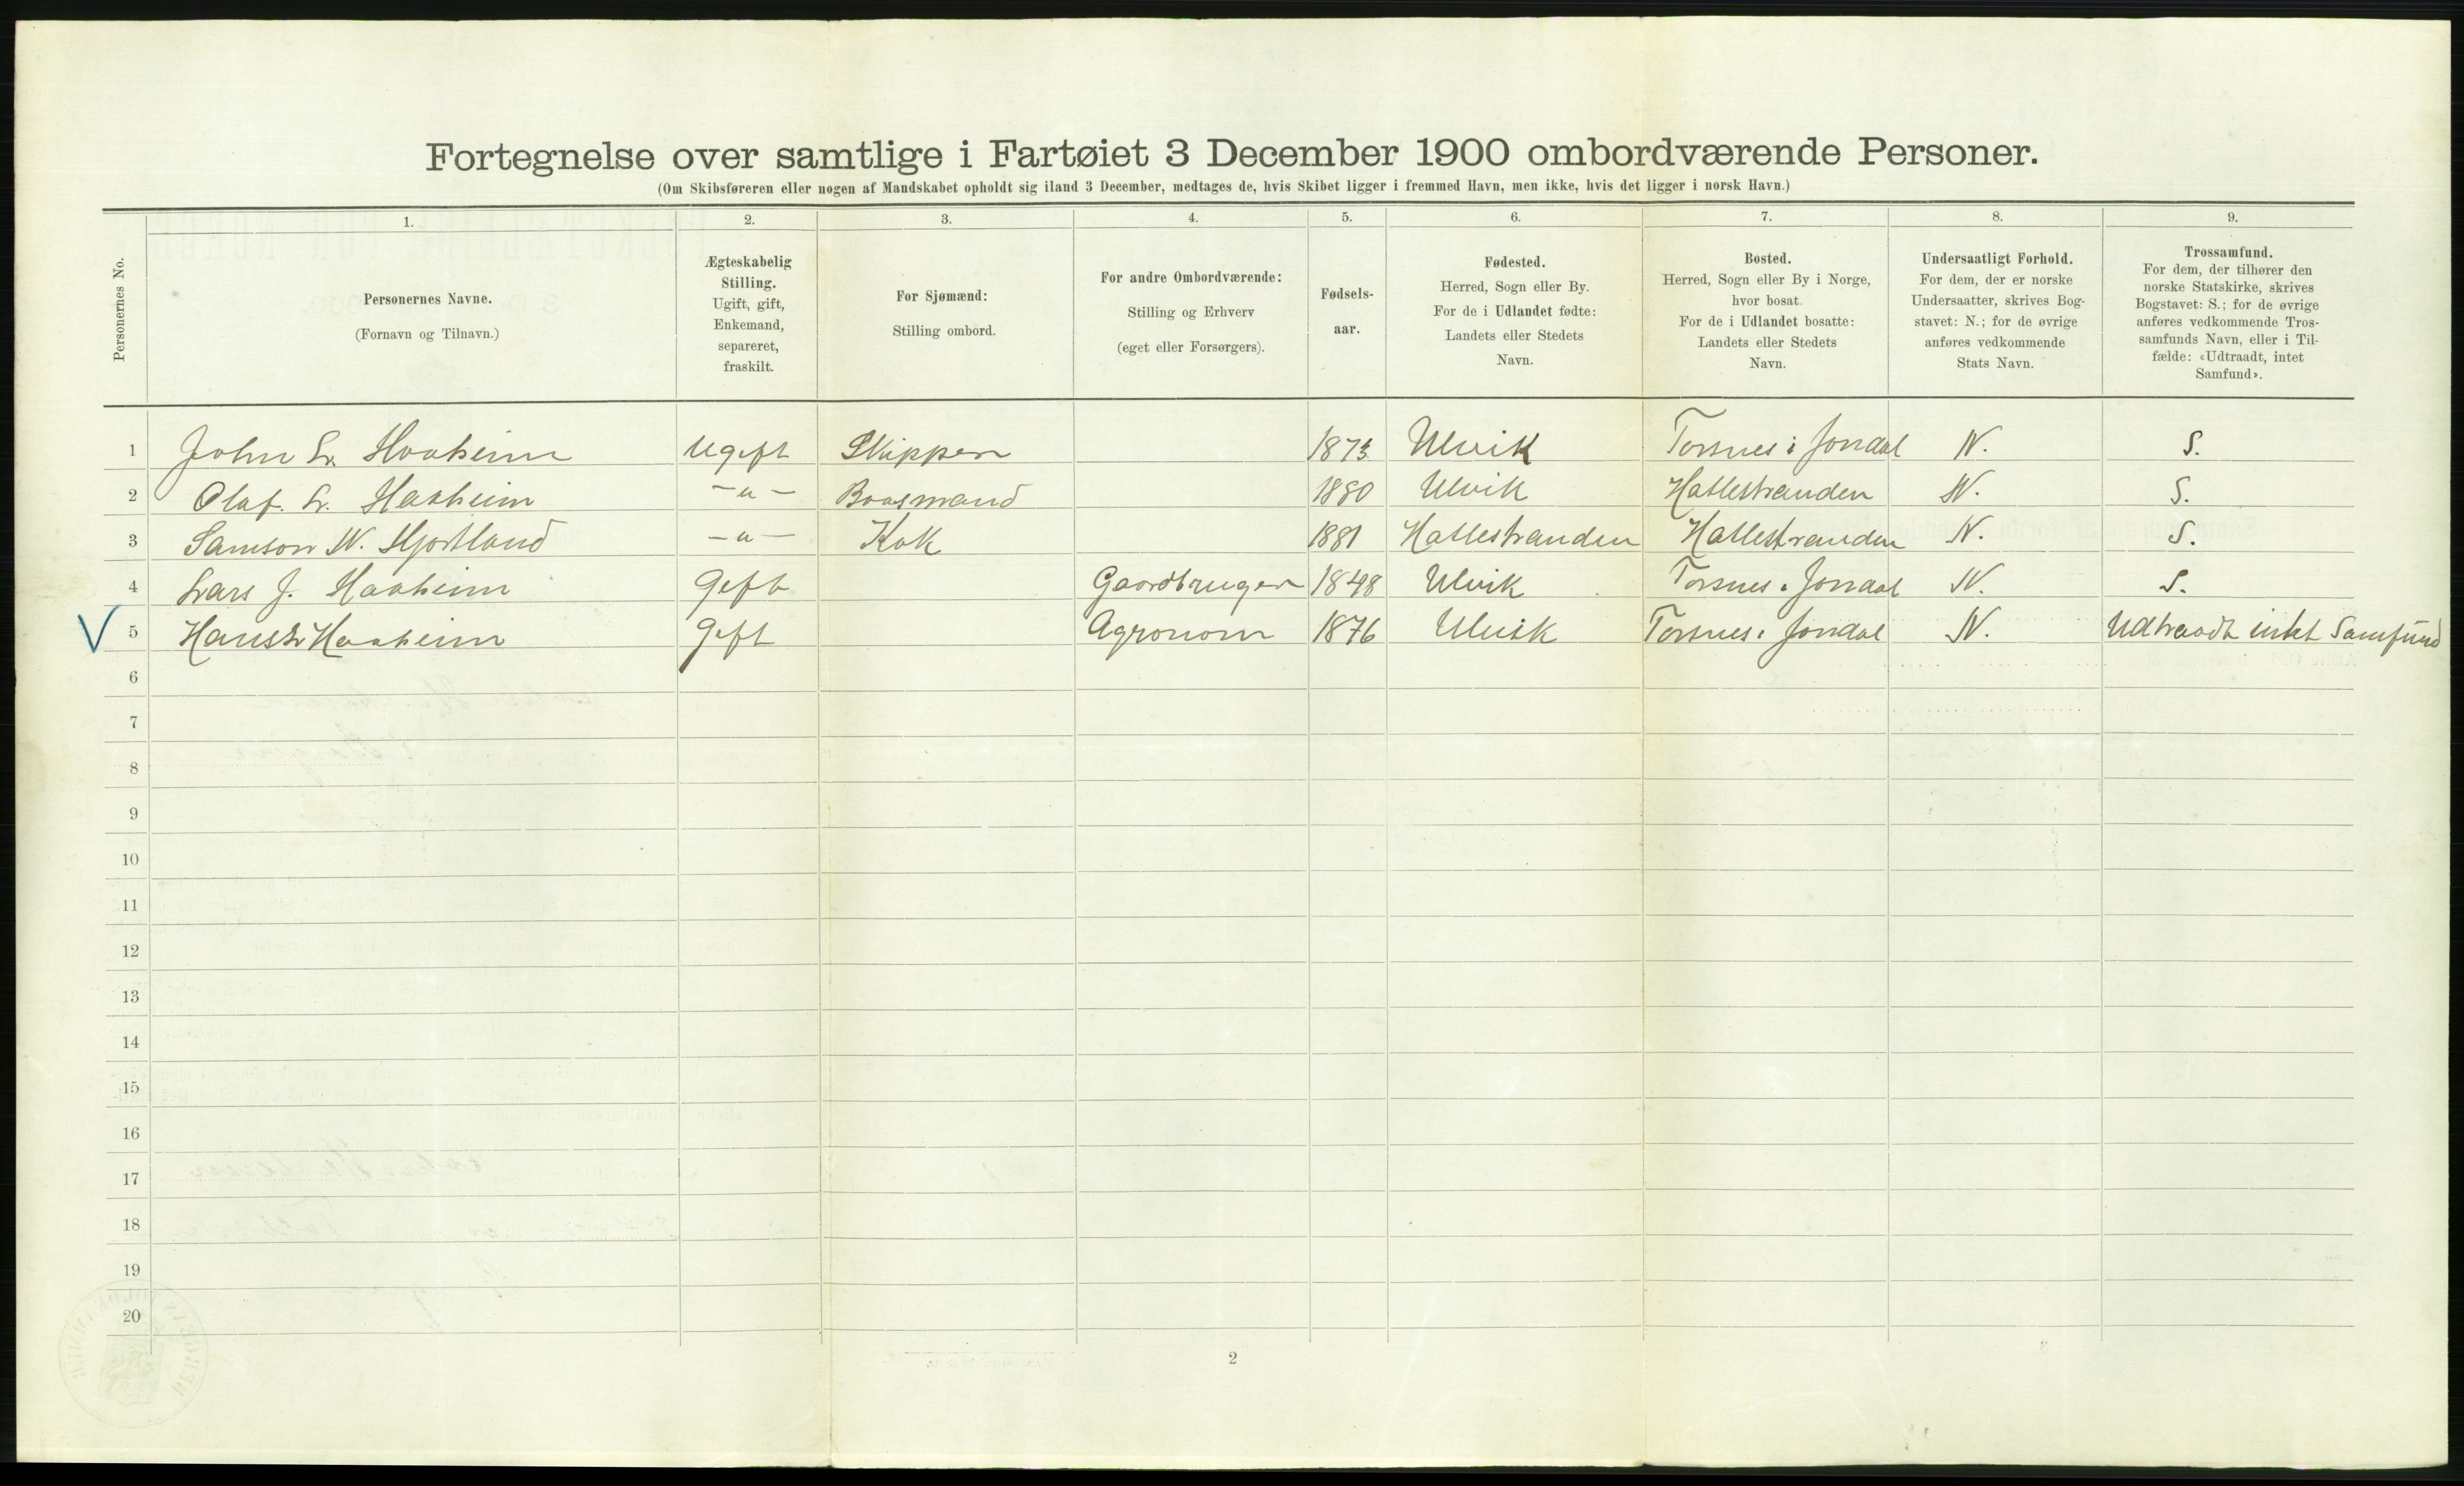 Fortegnelse over samtlige i Fartøiet 3 December 1900 ombordværende Personer.
(Om Skibsføreren eller nogen af Mandskabet opholdt sig iland 3 December, medtages de, hvis Skibet ligger i fremmed Havn, men ikke, hvis det ligger i norsk Havn.)
Personernes No.
1.
Personernes Navne.
(Fornavn og Tilnavn.)
2.
Ægteskabelig
Stilling.
Ugift, gift,
Enkemand,
separeret,
fraskilt.
3.
For Sjømænd:
Stilling ombord.
4.
For andre Ombordværende:
Stilling og Erhverv
(eget eller Forsørgers).
5.
Fødsels-
aar.
6.
Fødested.
Herred, Sogn eller By.
For de i Udlandet fødte:
Landets eller Stedets
Navn.
7.
Bosted.
Herred, Sogn eller By i Norge,
hvor bosat.
For de i Udlandet bosatte:
Landets eller Stedets
Navn.
8.
Undersaatligt Forhold.
For dem, der er norske
Undersaatter, skrives Bog-
stavet: N.; for de øvrige
anføres vedkommende
Stats Navn.
9.
Trossamfund.
For dem, der tilhører den
norske Statskirke, skrives
Bogstavet: S.; for de øvrige
anføres vedkommende Tros-
samfunds Navn, eller i Til-
fælde: «Udtraadt, intet
Samfund».
1 John L. Haaheim Ugift Skipper 1873 Ulvik Torsnes i Jondal N. S.
2 Olaf. L. Haaheim –„– Baasmand 1880 Ulvik Hatlestranden N. S.
3 Samson N. Hjortland –„– Kok 1881 Hatlestranden Hatlestranden N. S.
4 Lars J. Haaheim Gift Gaardbruger 1848 Ulvik Torsnes i Jondal N. S.
V 5 Hans L Haaheim Gift Agronom 1876 Ulvik Torsnes i Jondal N. Udtraadt intet Samfund
6
7
8
9
10
11
12
13
14
15
16
17
18
19
20
2